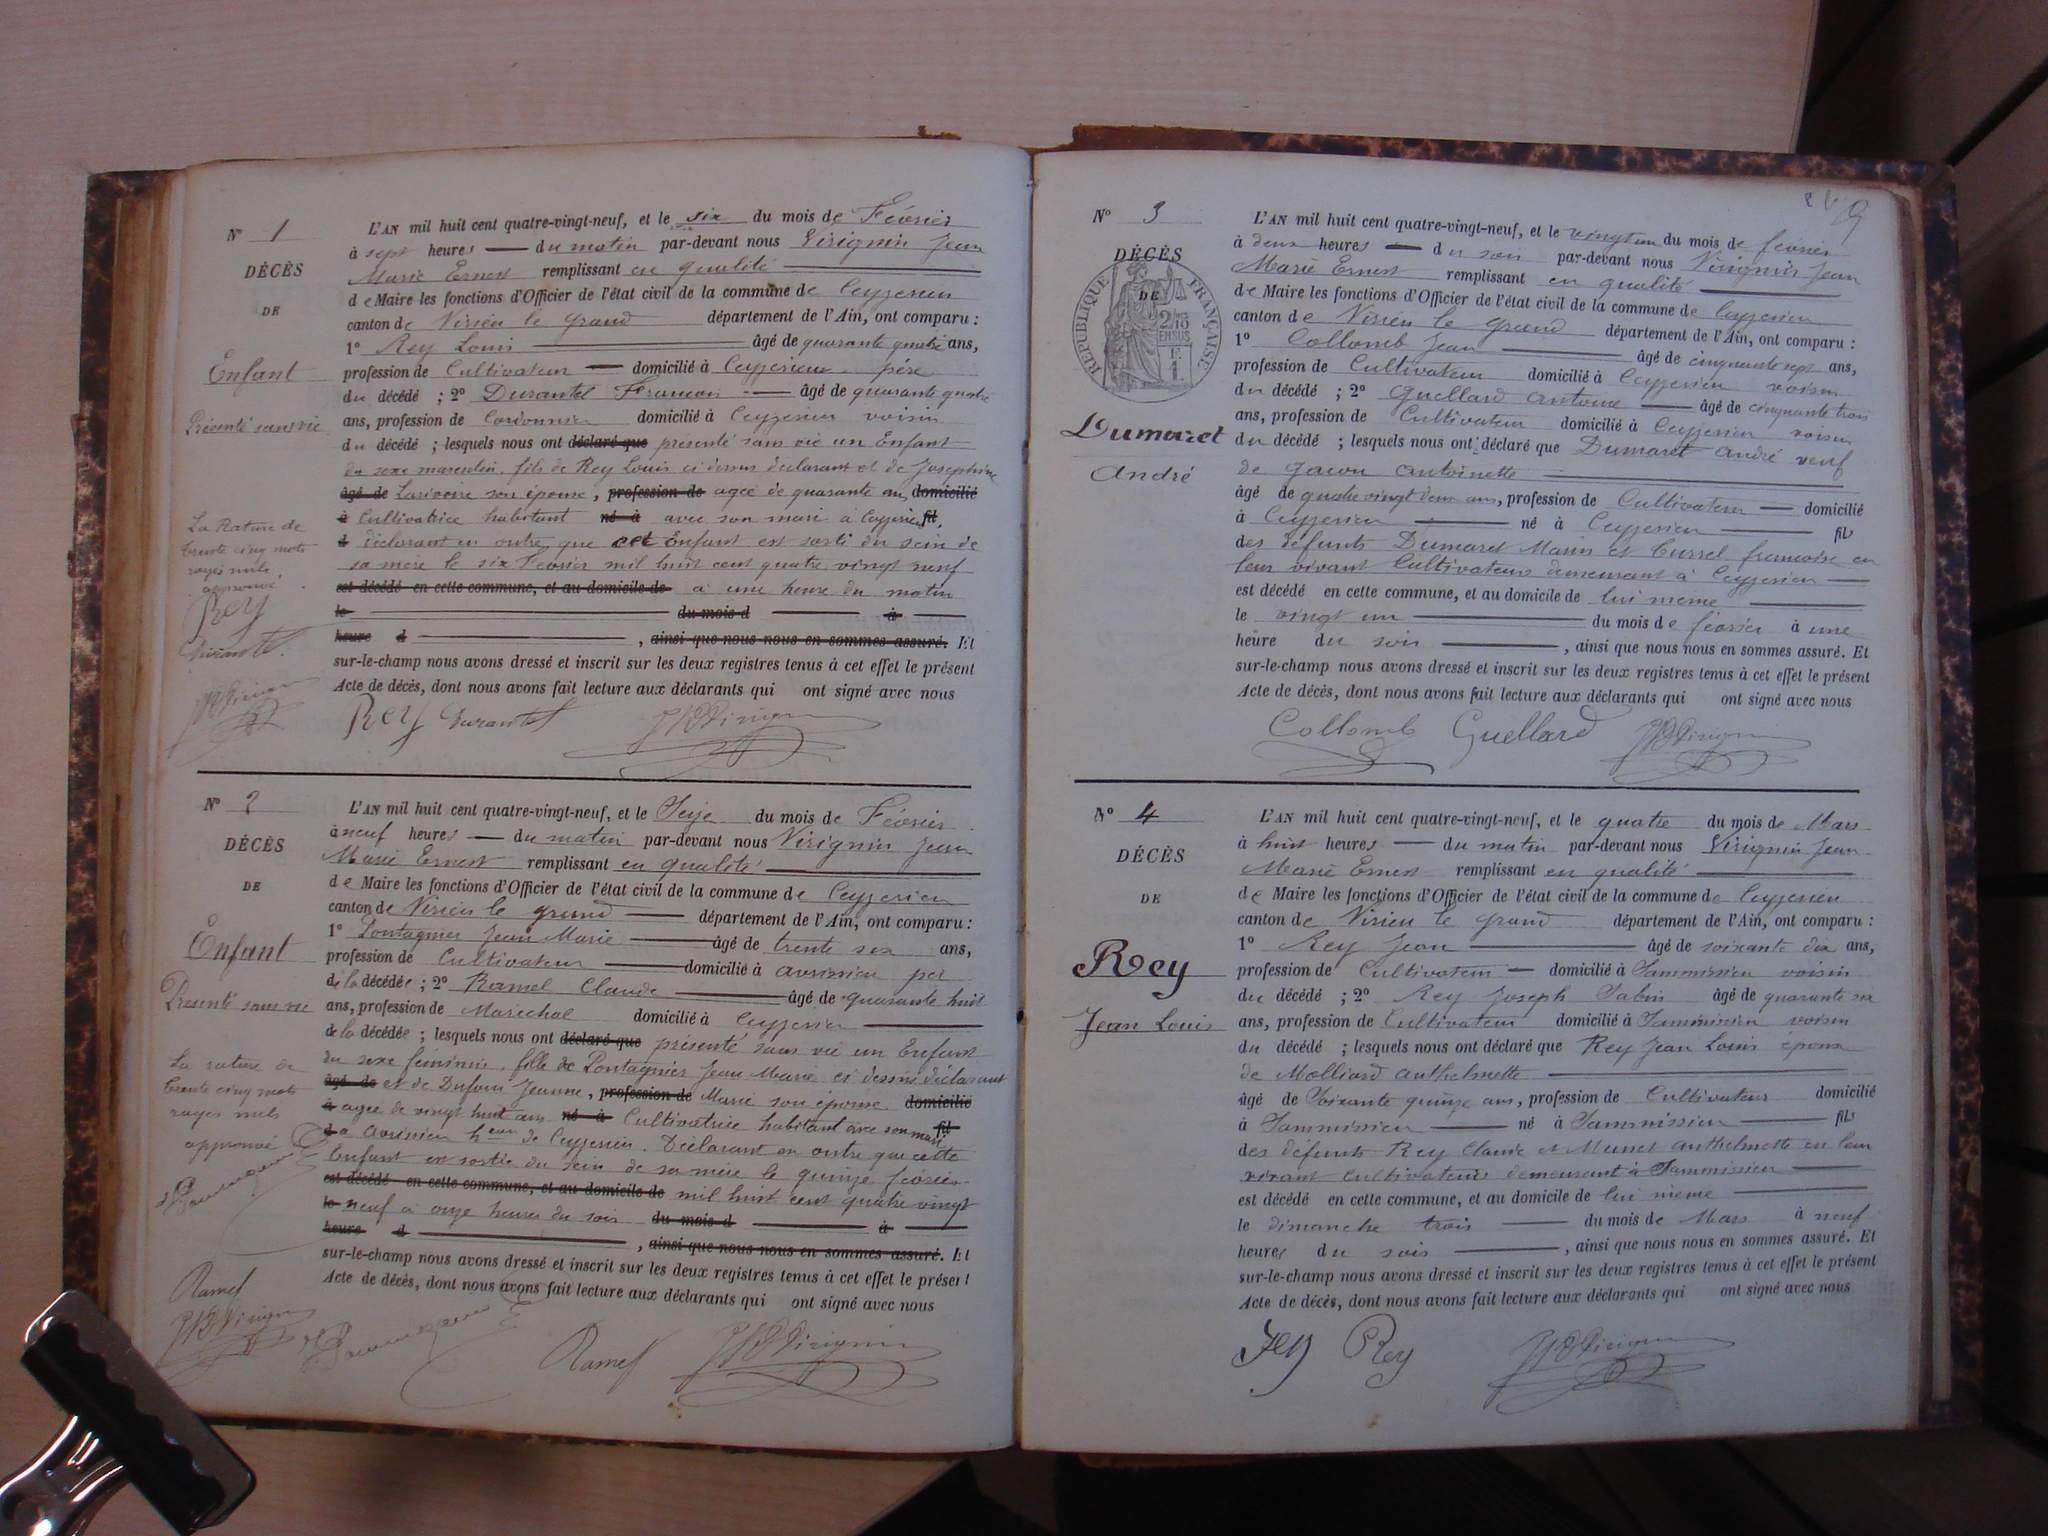 N° 1
DÉCÈS
DE
Enfant
Présenté sans vie
La Rature de
trente cinq mots
rayés nuls
approuvé
Rey
Durantel
L'AN mil huit cent quatre-vingt-neuf, et le six du mois de Février
à sept heures du matin par-devant nous Virignin Jean
Marie Ernest remplissant en qualité
de Maire les fonctions d'Officier de l'état civil de la commune de Ceyzerieu
canton de Virieu le grand département de l'Ain, ont comparu :
1° Rey Louis âgé de quarante quatre ans,
profession de Cultivateur domicilié à Ceyzerieu père
du décédé ; 2° Durantel Francois âgé de quarante quatre
ans, profession de Cordonnier domicilié à Ceyzerieu voisin
du décédé ; lesquels nous ont déclaré que présenté sans vie un Enfant
du sexe masculin, fils de Rey Louis ci dessus déclarant et de Josephine
âgé de Larivoire son épouse, profession de agée de quarante ans domicilié
à Cultivatrice habitant né à avec son mari à Ceyzerieu fil,
d déclarant en outre que cet Enfant est sorti du sein de
sa mère le six Février mil huit cent quatre vingt neuf
est décédé en cette commune, et au domicile de à une heure du matin
le du mois d à
heure d , ainsi que nous nous en sommes assuré. Et
sur-le-champ nous avons dressé et inscrit sur les deux registres tenus à cet effet le présent
Acte de décès, dont nous avons fait lecture aux déclarants qui ont signé avec nous
Rey Durantel JMEVirignin
N° 2
DÉCÈS
DE
Enfant
Présenté sans vie
La rature de
trente cinq mots
rayés nuls
approuvé
Ramel
L'AN mil huit cent quatre-vingt-neuf, et le Seize du mois de Février
à neuf heures du matin par-devant nous Virignin Jean
Marie Ernest remplissant en qualité
de Maire les fonctions d'Officier de l'état civil de la commune de Ceyzerieu
canton de Virieu le grand département de l'Ain, ont comparu :
1° Pontagnier Jean Marie âgé de trente six ans,
profession de Cultivateur domicilié à avrissieu per
de la décédée ; 2° Ramel Claude âgé de quarante huit
ans, profession de Maréchal domicilié à Ceyzerieu
de la décédée ; lesquels nous ont déclaré que présenté sans vie un Enfant
du sexe féminin, fille de Pontagnier Jean Marie ci dessus déclarant
âgé de et de Dufour Jeanne, profession de Marie son épouse domicilié
à agée de vingt huit ans né à Cultivatrice habitant avec son mari fil
d à avrissieu heau de Ceyzerieu. Déclarant en outre que cette
Enfant est sortie du sein de sa mère le quinze février
est décédé en cette commune, et au domicile de mil huit cent quatre vingt
le neuf à onze heures du soir du mois d à
heure d , ainsi que nous nous en sommes assuré. Et
sur-le-champ nous avons dressé et inscrit sur les deux registres tenus à cet effet le présent
Acte de décès, dont nous avons fait lecture aux déclarants qui ont signé avec nous
Ramel JMEVirignin
N° 3
DÉCÈS
DE
RÉPUBLIQUE FRANÇAISE
2/10
EN SUS
Dumaret
André
L'AN mil huit cent quatre-vingt-neuf, et le vingt un du mois de février
à deux heures du soir par-devant nous Virignin Jean
Marie Ernest remplissant en qualité
de Maire les fonctions d'Officier de l'état civil de la commune de Ceyzerieu
canton de Virieu le grand département de l'Ain, ont comparu :
1° Collomb Jean âgé de cinquante sept ans,
profession de Cultivateur domicilié à Ceyzerieu voisin
du décédé ; 2° Guellard Antoine âgé de cinquante trois
ans, profession de Cultivateur domicilié à Ceyzerieu voisin
du décédé ; lesquels nous ont déclaré que Dumaret André veuf
de Gacon Antoinette
âgé de quatre vingt deux ans, profession de Cultivateur domicilié
à Ceyzerieu né à Ceyzerieu fils
des défunts Dumaret Marin et Currel francoise en
leur vivant Cultivateurs demeurant à Ceyzerieu
est décédé en cette commune, et au domicile de lui meme
le vingt un du mois de février à une
heure du soir , ainsi que nous nous en sommes assuré. Et
sur-le-champ nous avons dressé et inscrit sur les deux registres tenus à cet effet le présent
Acte de décès, dont nous avons fait lecture aux déclarants qui ont signé avec nous
Collomb Guellard JMEVirignin
N° 4
DÉCÈS
DE
Rey
Jean Louis
L'AN mil huit cent quatre-vingt-neuf, et le quatre du mois de Mars
à huit heures du matin par-devant nous Virignin Jean
Marie Ernest remplissant en qualité
de Maire les fonctions d'Officier de l'état civil de la commune de Ceyzerieu
canton de Virieu le grand département de l'Ain, ont comparu :
1° Rey Jean âgé de soixante dix ans,
profession de Cultivateur domicilié à Jammissieu voisin
du décédé ; 2° Rey Joseph Sabin âgé de quarante six
ans, profession de Cultivateur domicilié à Jammissieu voisin
du décédé ; lesquels nous ont déclaré que Rey Jean Louis époux
de Molliard Anthelmette
âgé de Soixante quinze ans, profession de Cultivateur domicilié
à Jammissieu né à Jammissieu fils
des défunts Rey Claude et Munet Anthelmette en leur
vivant Cultivateurs demeurant à Jammissieu
est décédé en cette commune, et au domicile de lui meme
le dimanche trois du mois de Mars à neuf
heures du soir , ainsi que nous nous en sommes assuré. Et
sur-le-champ nous avons dressé et inscrit sur les deux registres tenus à cet effet le présent
Acte de décès, dont nous avons fait lecture aux déclarants qui ont signé avec nous
Rey Rey JMEVirignin